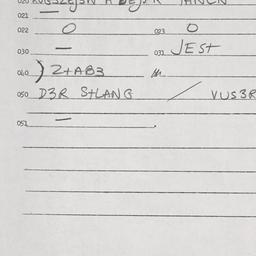 021 —
022 O 023 O
030 — 031 JESt
040 ) Z+AB3
050 D3R StLANG / VUS3R
051 —